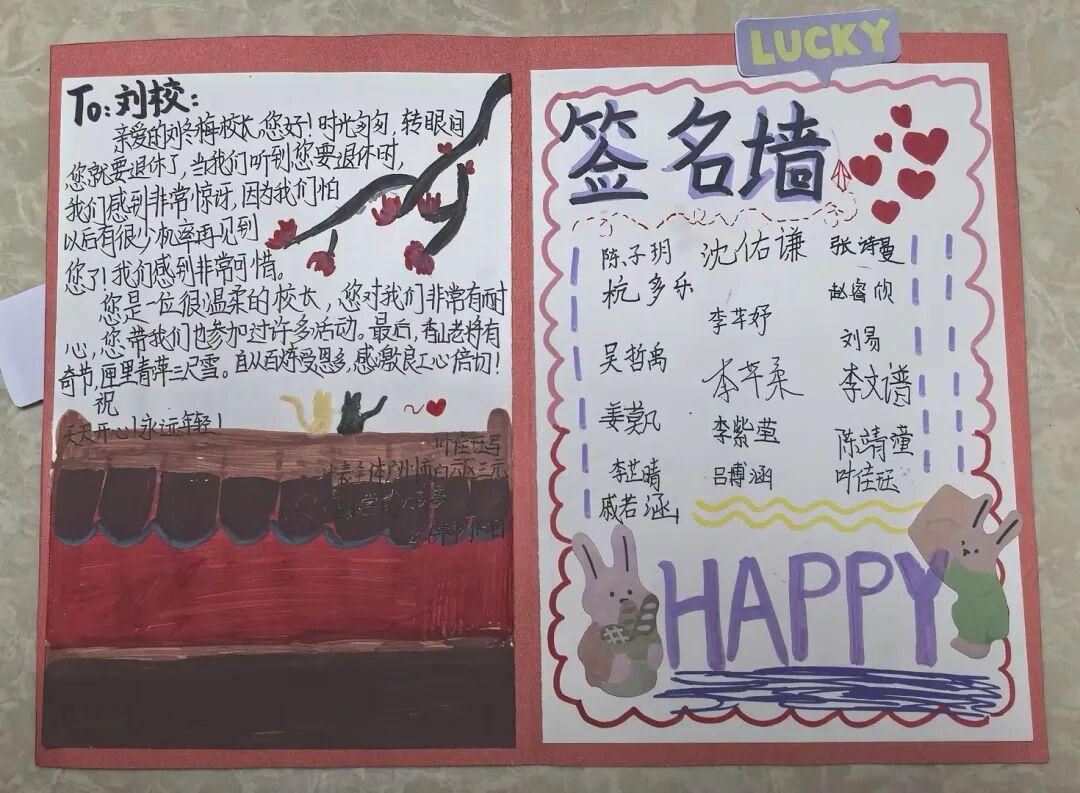 To:刘校:
亲爱的刘冬梅校长,您好!时光匆匆,转眼目
您就要退休了,当我们听到您要退休时,
我们感到非常惊讶,因为我们怕
以后有很少机率再见到
您了!我们感到非常可惜。
您是一位很温柔的校长,您对我们非常有耐
心,您带我们也参加过许多活动。最后,香山老将有
奇节,匣里青萍三尺雪。自从百烤受恩多,感激良工心倍切!
祝
天天开心!永远年轻!
叶佳钰写
代表全体广州市白云区三元
LUCKY
签名墙
陈子玥 沈佑谦 张诗曼
杭多乐 赵睿欣
李芊妤
吴哲禹 刘易
李芊柔 李文谱
姜莫凡 李紫莹 陈靖潼
李芷晴 吕博涵 叶佳钰
戚若涵
HAPPY